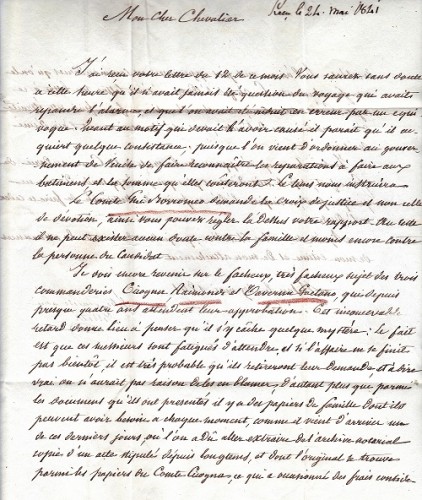 Mon cher Chevalier le 24. mai 1841
J'ai reçu votre lettre du 12 de ce mois. Vous saurez sans doute
à cette heure qu'il n'avait jamais été question du voyage qui avait
répandu l'alarme, et que l'on avait été induit en erreur par un equi
voque. Quant au motif qui devait l'avoir causé il parait qu'il ac
quiert quelque consistance, puisque l'on vient d'ordonner au gouver
nement de Venise de faire reconnaître les réparations à faire aux
batimens et la somme qu'elles couteront. Le tems nous instruira
le Comte Borromeo demande la Croix de justice et non celle
de dévotion, ainsi vous pouvez régler là dessus votre rapport. Au reste
il ne peut exister aucun doute contre la famille et moins encore contre
la personne du Candidat
Je dois encore revenir sur le facheux, très facheux sujet des trois
commanderies Cicogna Raimondi et Taverna Gaetano, qui depuis
presque quatre ans attendent leur approbation. Cet inconcevable
retard donne lieu à penser qu'il s'y cache quelque mystère; le fait
est que ces messieurs sont fatigués d'attendre, et si l'affaire ne se finit
pas bientôt, il est très probable qu'ils retireront leur demande, et à dire
vrai on n'aurait pas raison de les en blamer, d'autant plus que parmi
les documens qu'ils ont présentés il y a des papiers de famille dont ils
peuvent avoir besoin à chaque moment, comme il vient d'arriver un
de ces derniers jours où l'on a dû aller extraire des archives notarial
copie d'un acte stipulé depuis longtems, et dont l'original se trouve
parmi les papiers du Comte Cicogna, ce qui a occasionné des frais considé